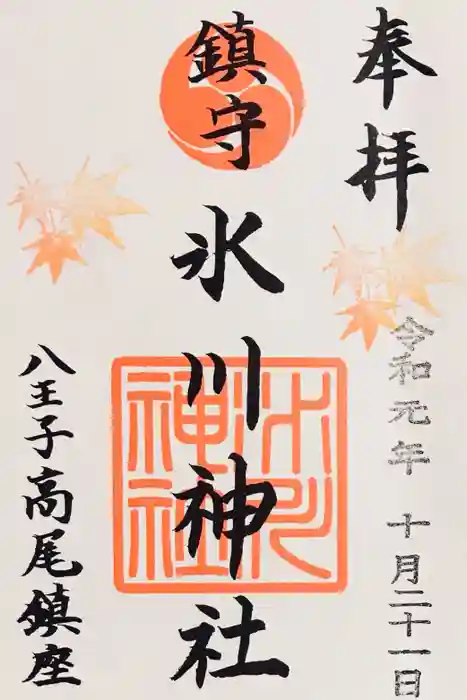 奉拝
令和元年 十月二十一日
鎮守 氷川神社
氷川神社
八王子高尾鎮座